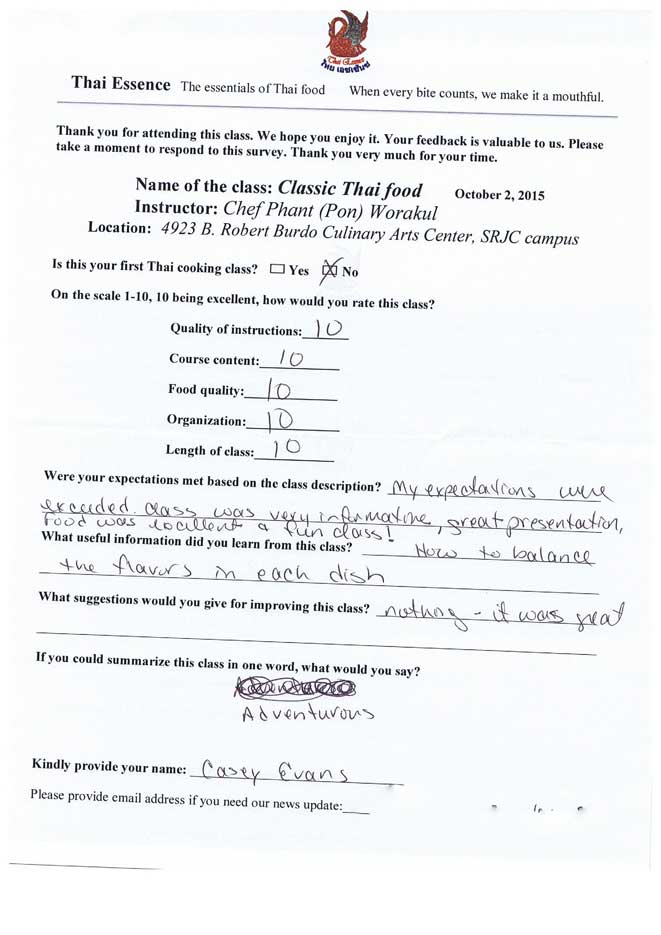 Thai Essence
ไทย เอซเซ้นซ์
Thai Essence The essentials of Thai food When every bite counts, we make it a mouthful.
Thank you for attending this class. We hope you enjoy it. Your feedback is valuable to us. Please
take a moment to respond to this survey. Thank you very much for your time.
Name of the class: Classic Thai food October 2, 2015
Instructor: Chef Phant (Pon) Worakul
Location: 4923 B. Robert Burdo Culinary Arts Center, SRJC campus
Is this your first Thai cooking class? ☐ Yes ☒ No
On the scale 1-10, 10 being excellent, how would you rate this class?
Quality of instructions: 10
Course content: 10
Food quality: 10
Organization: 10
Length of class: 10
Were your expectations met based on the class description? My expectations were
exceeded. Class was very informative, great presentation,
food was excellent a fun class!
What useful information did you learn from this class? How to balance
the flavors in each dish
What suggestions would you give for improving this class? nothing - it was great
If you could summarize this class in one word, what would you say?
Adventurous
Kindly provide your name: Casey Evans
Please provide email address if you need our news update: